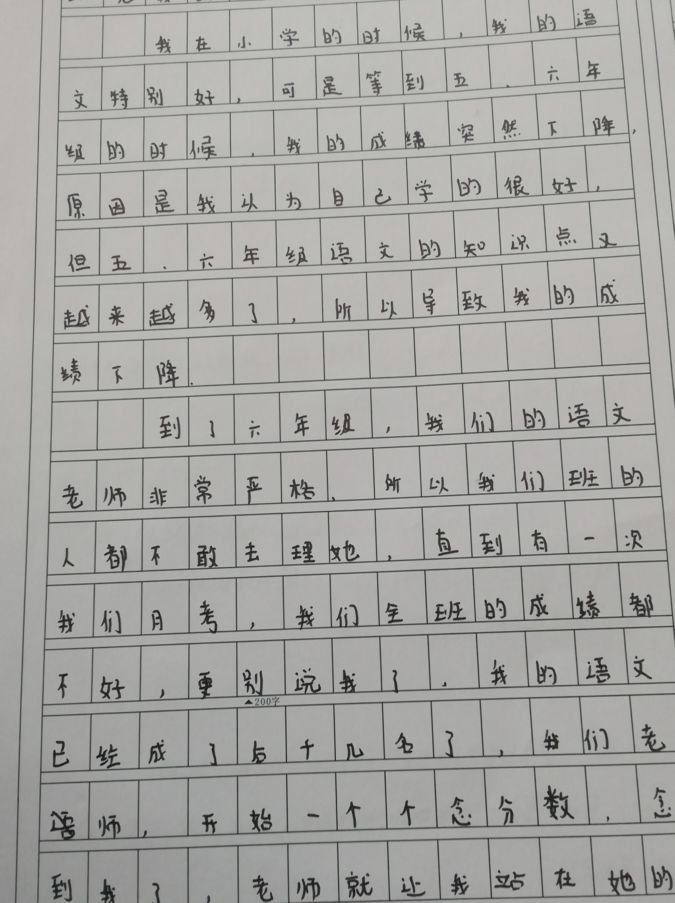 我在小学的时候，我的语
文特别好，可是等到五、六年
组的时候，我的成绩突然下降，
原因是我以为自己学的很好，
但五、六年组语文的知识点又
越来越多了，所以导致我的成
绩下降.
到了六年组，我们的语文
老师非常严格、所以我们班的
人都不敢去理她，直到有一次
我们月考，我们全班的成绩都
不好，更别说我了．我的语文
▲200字
已经成了后十几名了，我们老
语师，开始一个个念分数．念
到我了，老师就让我站在她的